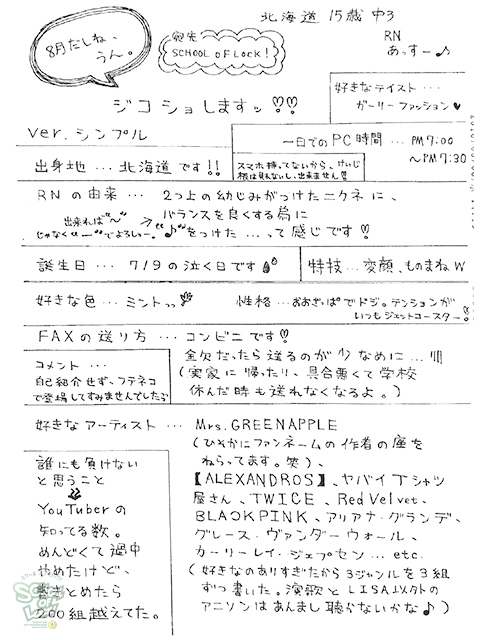 北海道 15歳 中3
8月だしね、
うん。
宛先
SCHOOL OF LOCK!
RN
あっすー♪
ジコショしますッ!!
好きなテイスト…
ガーリーファッション♥
ver. シンプル
一日でのPC時間 … PM7:00
〜PM7:30
出身地 … 北海道です!!
スマホ持ってないから、けいじ
板は見れないし、出来ません
RNの由来 … 2つ上の幼じみがつけたニクネに、
バランスを良くする為に
"♪"をつけた…って感じです!
出来れば"〜"
じゃなく"ー"でよろしゅー。
誕生日 … 7/9の泣く日です
特技 … 変顔、ものまねw
好きな色 … ミントっっ
性格 … おおざっぱでドジ。テンションが
いつもジェットコースター!
FAXの送り方 … コンビニです!
金欠だったら送るのが少なめに…
(実家に帰ったり、具合悪くて学校
休んだ時も送れなくなるよ。)
コメント …
自己紹介せず、フデネコ
で登場してすみませんでした
好きなアーティスト … Mrs. GREEN APPLE
(ひそかにファンネームの作者の座を
ねらってます。笑)、
【ALEXANDROS】、ヤバイTシャツ
屋さん、TWICE、Red Velvet、
BLACKPINK、アリアナ・グランデ、
グレース・ヴァンダーウォール、
カーリーレイ・ジェプセン … etc.
(好きなのありすぎたから3ジャンルを3組
ずつ書いた。演歌とLISA以外の
アニソンはあんまし聴かないかな♪)
誰にも負けない
と思うこと
YouTuberの
知ってる数。
めんどくて途中
やめたけど、
書きとめたら
200組越えてた。